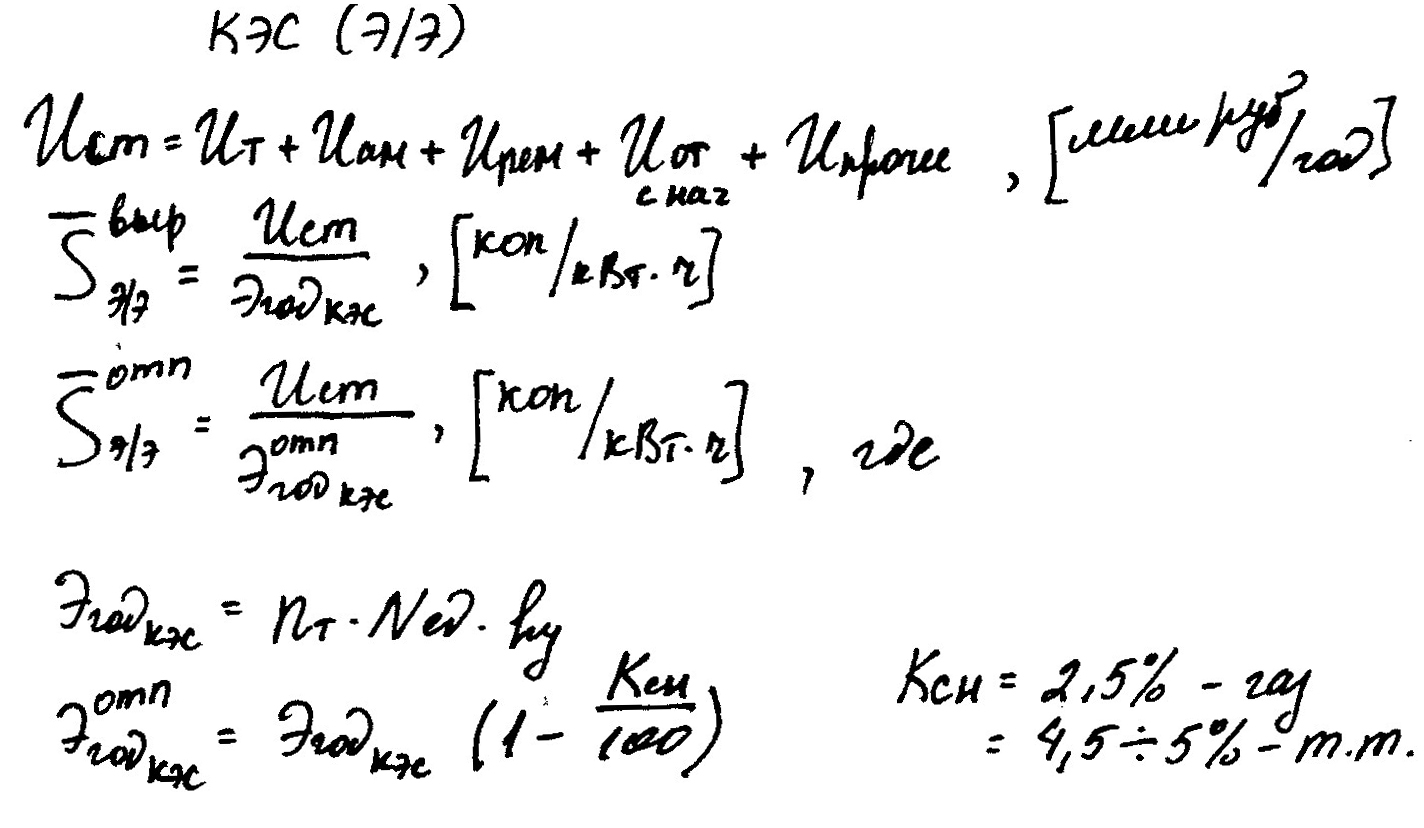 КЭС (Э/Э)
Uст = Uт + Uам + Uрем + Uот с нач + Uпрочие , [млн руб/год]
S̅ выр э/э = Uст / Эгод кэс , [коп/кВт·ч]
S̅ отп э/э = Uст / Э отп год кэс , [коп/кВт·ч] , где
Эгод кэс = nт · Nед · hу
Э отп год кэс = Эгод кэс (1 - Kсн / 100)
Kсн = 2,5% - газ
= 4,5 ÷ 5% - т.т.